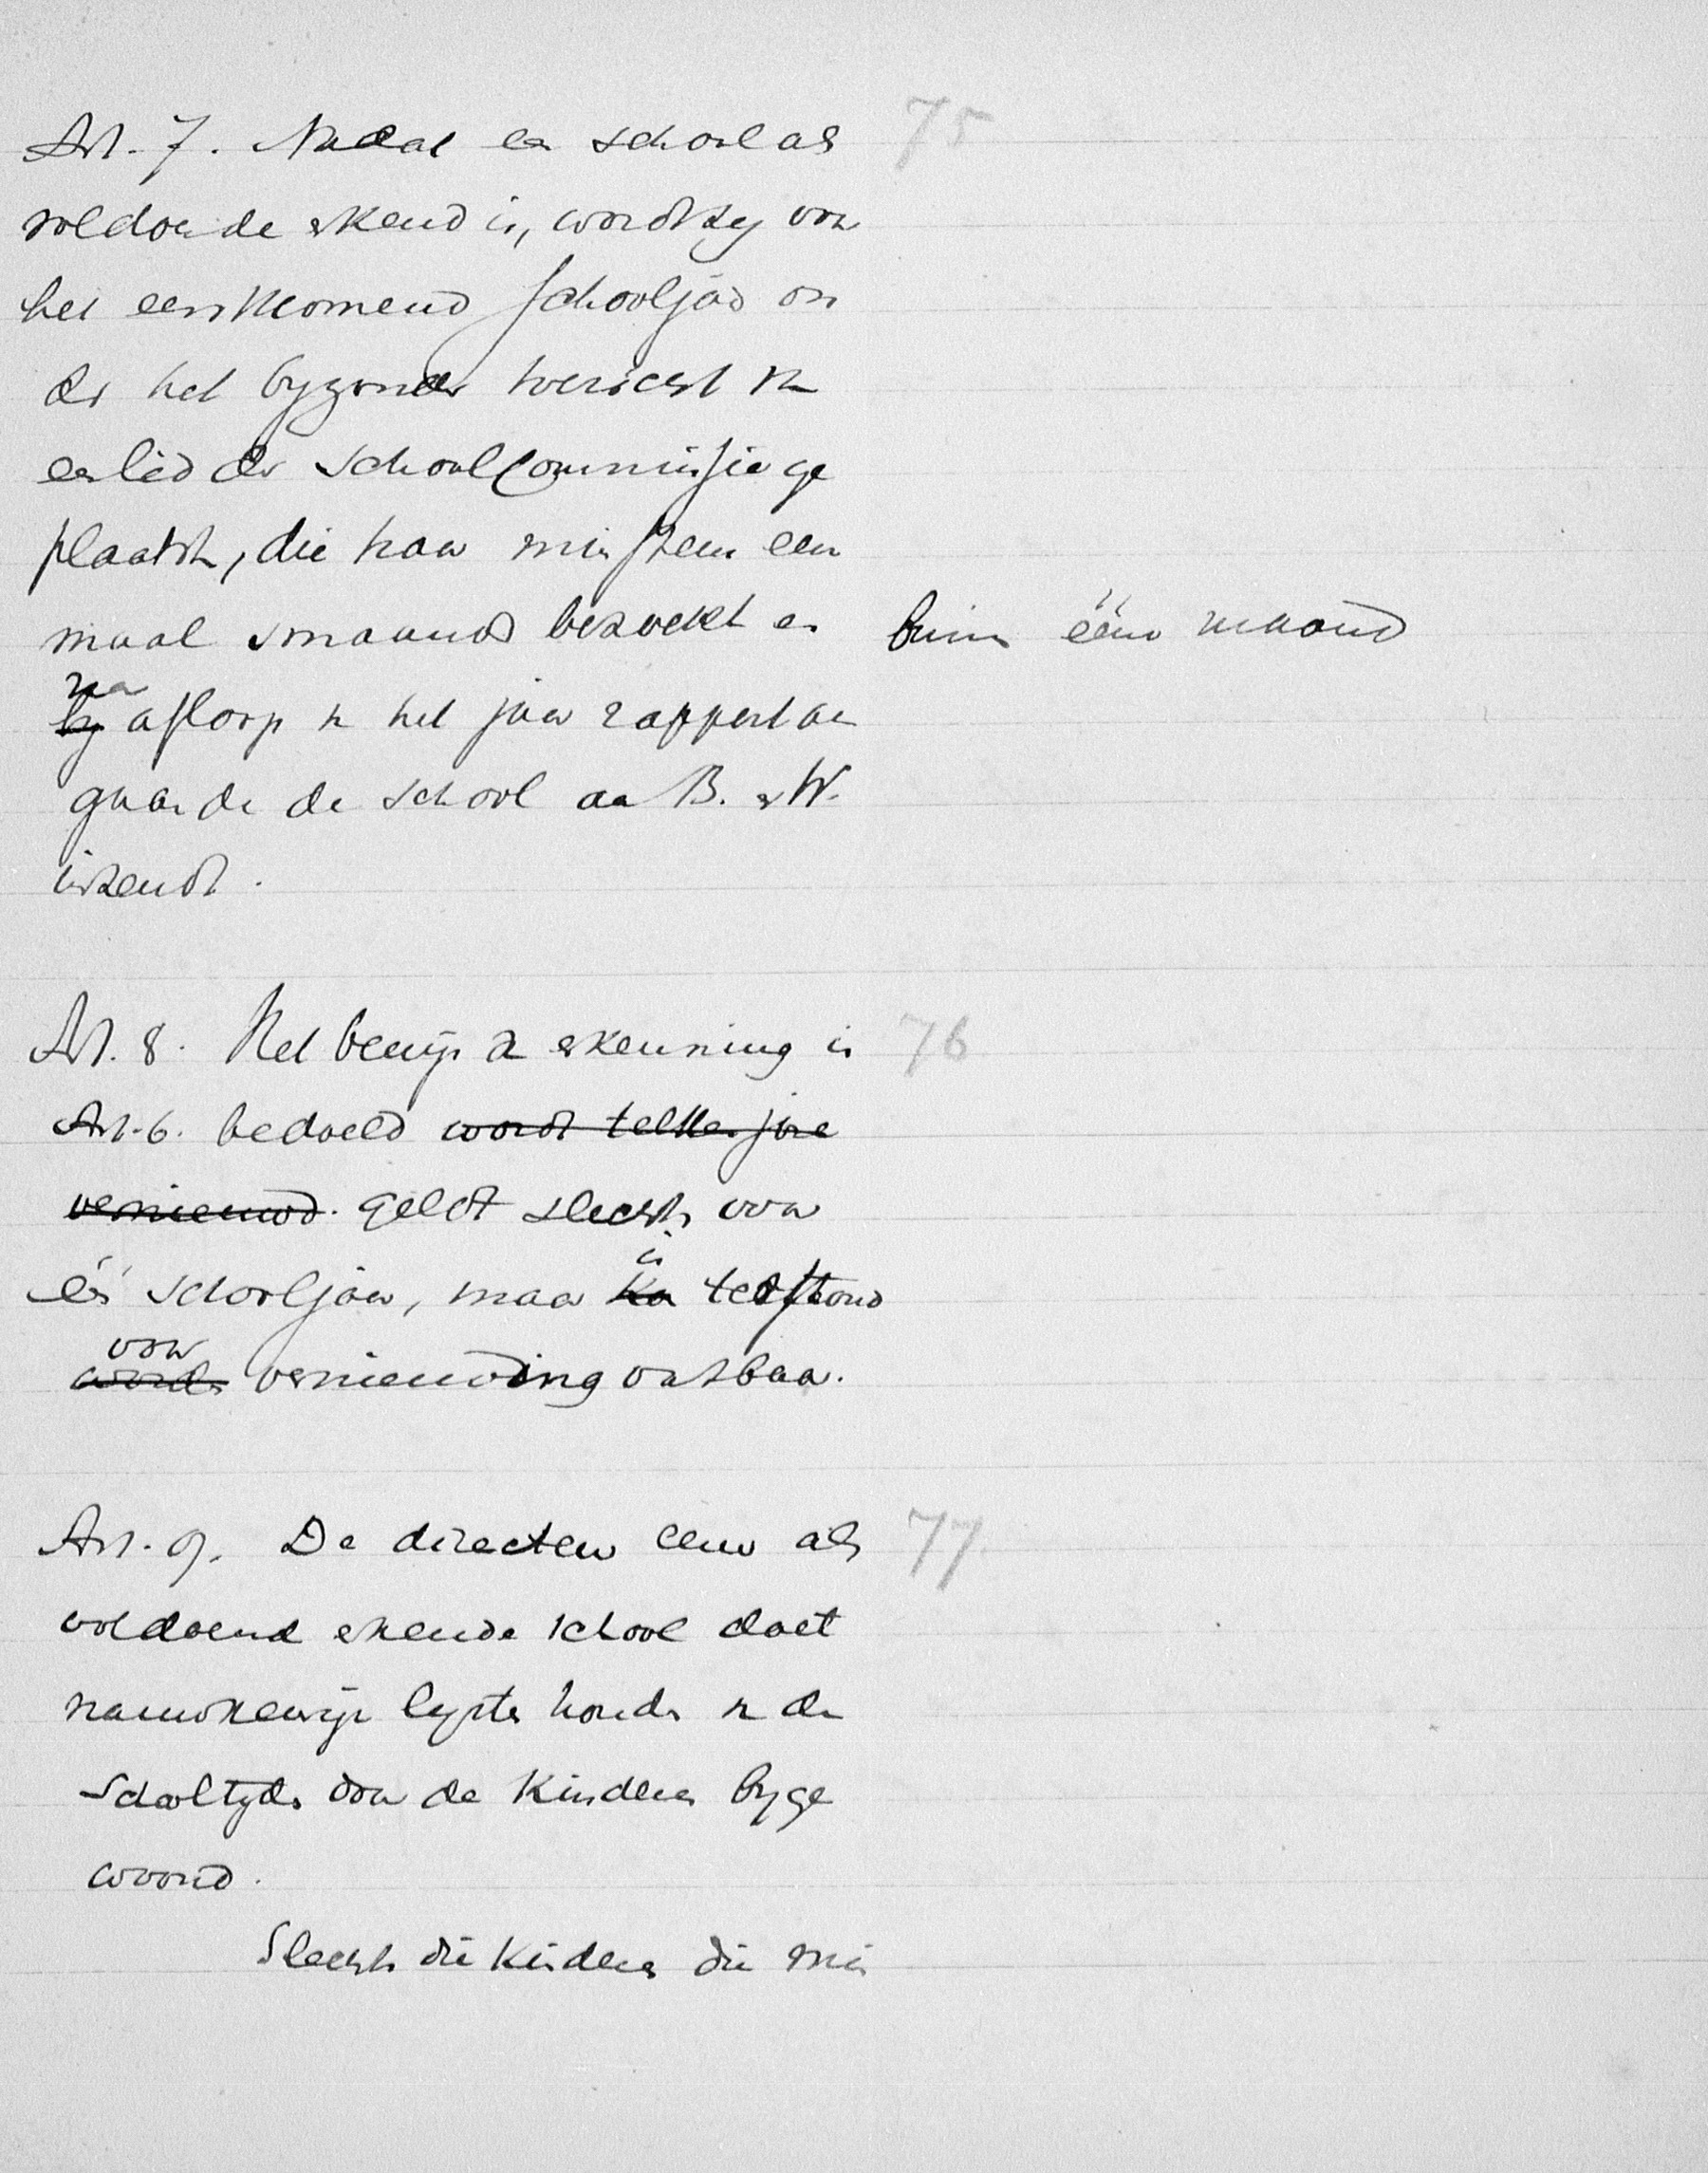 Art. 7. Nadat een school als 75
voldoende erkend is, wordt zy voor
het eerstkomend schooljaar on
der het byzonder toezicht van
een lid der Schoolcommissie ge
plaatst, die haar minstens een
maal smaands bezoekt en binnen één maand
na
by afloop van het jaar rapport aan
gaande de school aan B. en W.
inzendt.
Art. 8. Het bewijs van erkenning in 76
Art. 6. bedoeld wordt telken jare
vernieuwd. geldt slechts voor
één schooljaar, maar kan telkens
is
voor
worden vernieuwing vatbaar.
Art. 9. De directeur eener als 77
voldoend erkende school doet
nauwkeurige lysten houden van de
Schooltyden door de Kinderen byge
woond.
Slechts die Kinderen die min